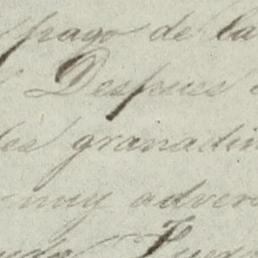 pago de la
Despues
les granadin
muy adver